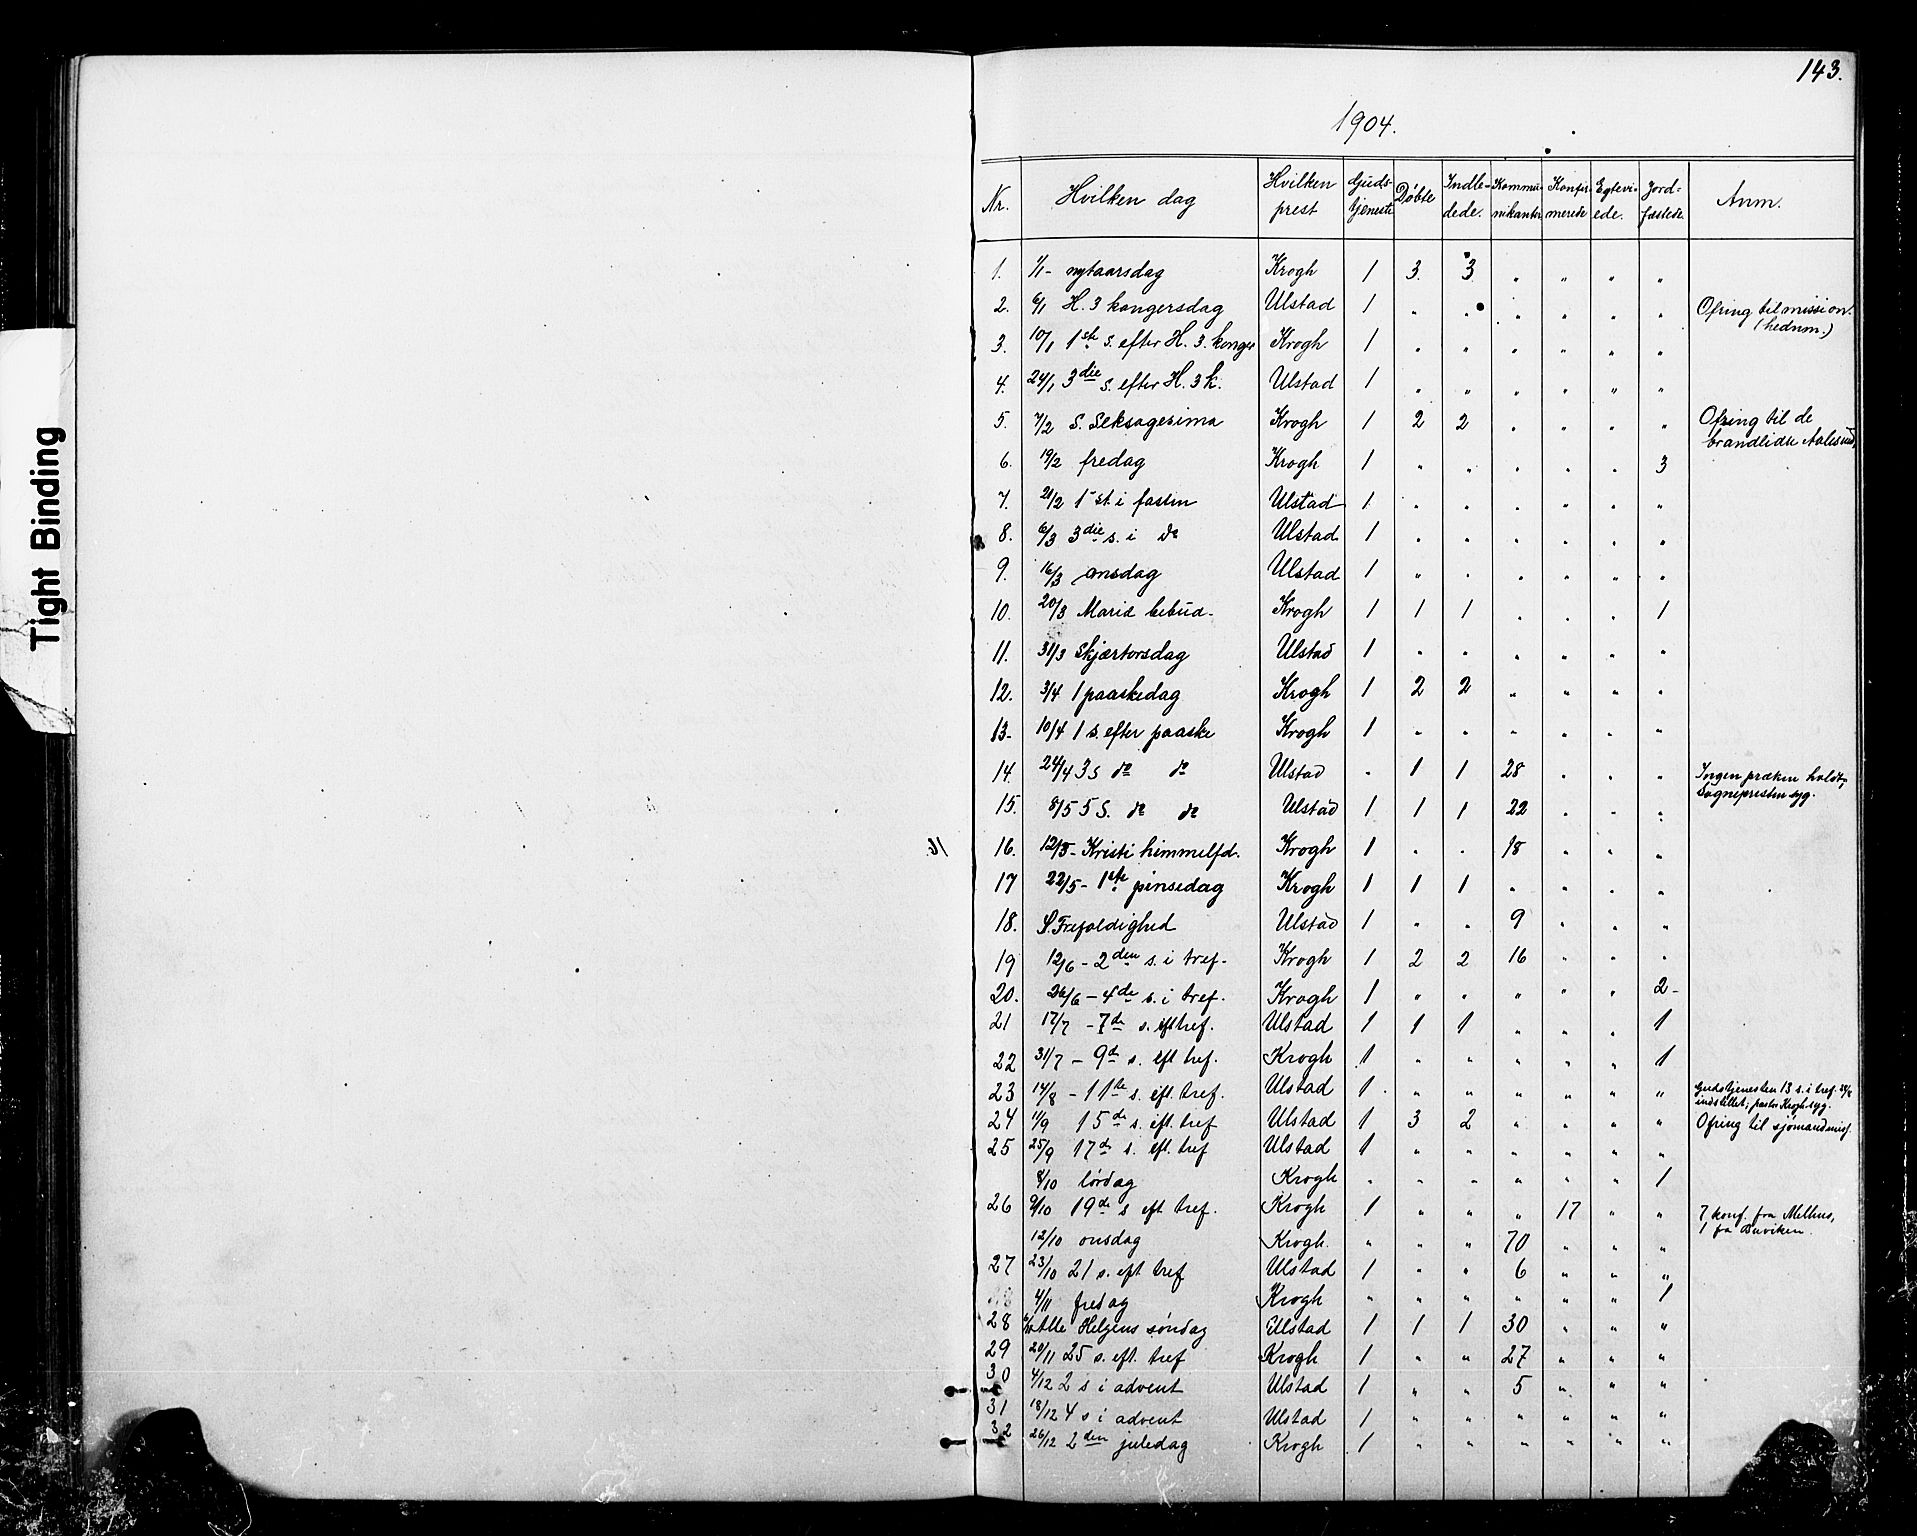 Tight Binding
16.
143.
1904.
Nr. Hvilken dag Hvilken prest Guds-tjeneste Døbte Indle-dede. Kommu-nikanter Konfir-merede Egtevi-ede. Jord-fæstede Anm.
1. 1/1- nytaarsdag Krogh 1 3. 3 " " " "
2. 6/1 H. 3 kongersdag Ulstad 1 " " " " " " Ofring til mission. (hednm.)
3. 10/1 1ste s. efter H. 3. konger Krogh 1 " " " " " "
4. 24/1 3die s. efter H. 3 k. Ulstad 1 " " " " " "
5. 7/2 S. Seksagesima Krogh 1 2 2 " " " " Ofring til de brandlidte Aalesund,
6. 19/2 fredag Krogh 1 " " " " " 3
7. 21/2 1 st. i fasten Ulstad 1 " " " " " "
8. 6/3 3die s. i do Ulstad 1 " " " " " "
9. 16/3 onsdag Ulstad 1 " " " " " "
10. 20/3 Mariæ bebud- Krogh 1 1 1 " " " 1
11. 31/3 Skjærtorsdag Ulstad 1 " " " " " "
12. 3/4 1 paaskedag Krogh 1 2 2 " " " "
13- 10/4 1 s. efter paaske Krogh 1 " " " " " "
14. 24/4 3 s do do Ulstad " 1 1 28 " " " Ingen præken holdt, Sognepresten syg.
15. 8/5 5 S. do do Ulstad 1 1 1 22 " " "
16. 12/5- Kristi himmelfd. Krogh 1 " " 18 " " "
17 22/5- 1ste pinsedag Krogh 1 1 1 " " " "
18. S. Trefoldighed Ulstad 1 " " 9 " " "
19 12/6 - 2den s. i tref- Krogh 1 2 2 16 " " "
20. 26/6 - 4de s. i tref. Krogh 1 " " " " " 2-
21 17/7 - 7de s. eft tref. Ulstad 1 1 1 " " " 1
22 31/7 - 9d s. eft tref. Krogh 1 " " " " " 1
23 14/8 - 11te s. eft. tref. Ulstad 1 " " " " " " Gudstjenesten 13 s. i tref. 28/8 indstillet; pastor Krogh syg.
24 11/9 15de s. eft. tref Ulstad 1 3 2 " " " " Ofring til sjømandsmiss.
25 25/9 17de s. eft. tref Ulstad 1 " " " " " "
8/10 lørdag Krogh " " " " " " 1
26 9/10 19de s eft tref. Krogh 1 " " " 17 " " 7 konf. fra Melhus, 1 fa Buviken.
12/10 onsdag Krogh. " " " 70 " " "
27 23/10 21 s. eft tref Ulstad 1 " " 6 " " "
4/11 fredag Krogh " " " " " " 1
28 6/11 Alle Helgens søndag Ulstad 1 1 1 30 " " "
29 20/11 25 s. eft. tref Krogh 1 " " 27 " " "
30 4/12 2 s i advent Ulstad 1 " " 5 " " "
31 18/12 4 s i advent Ulstad 1 " " " " " "
32 26/12 2den juledag Krogh 1 " " " " " "